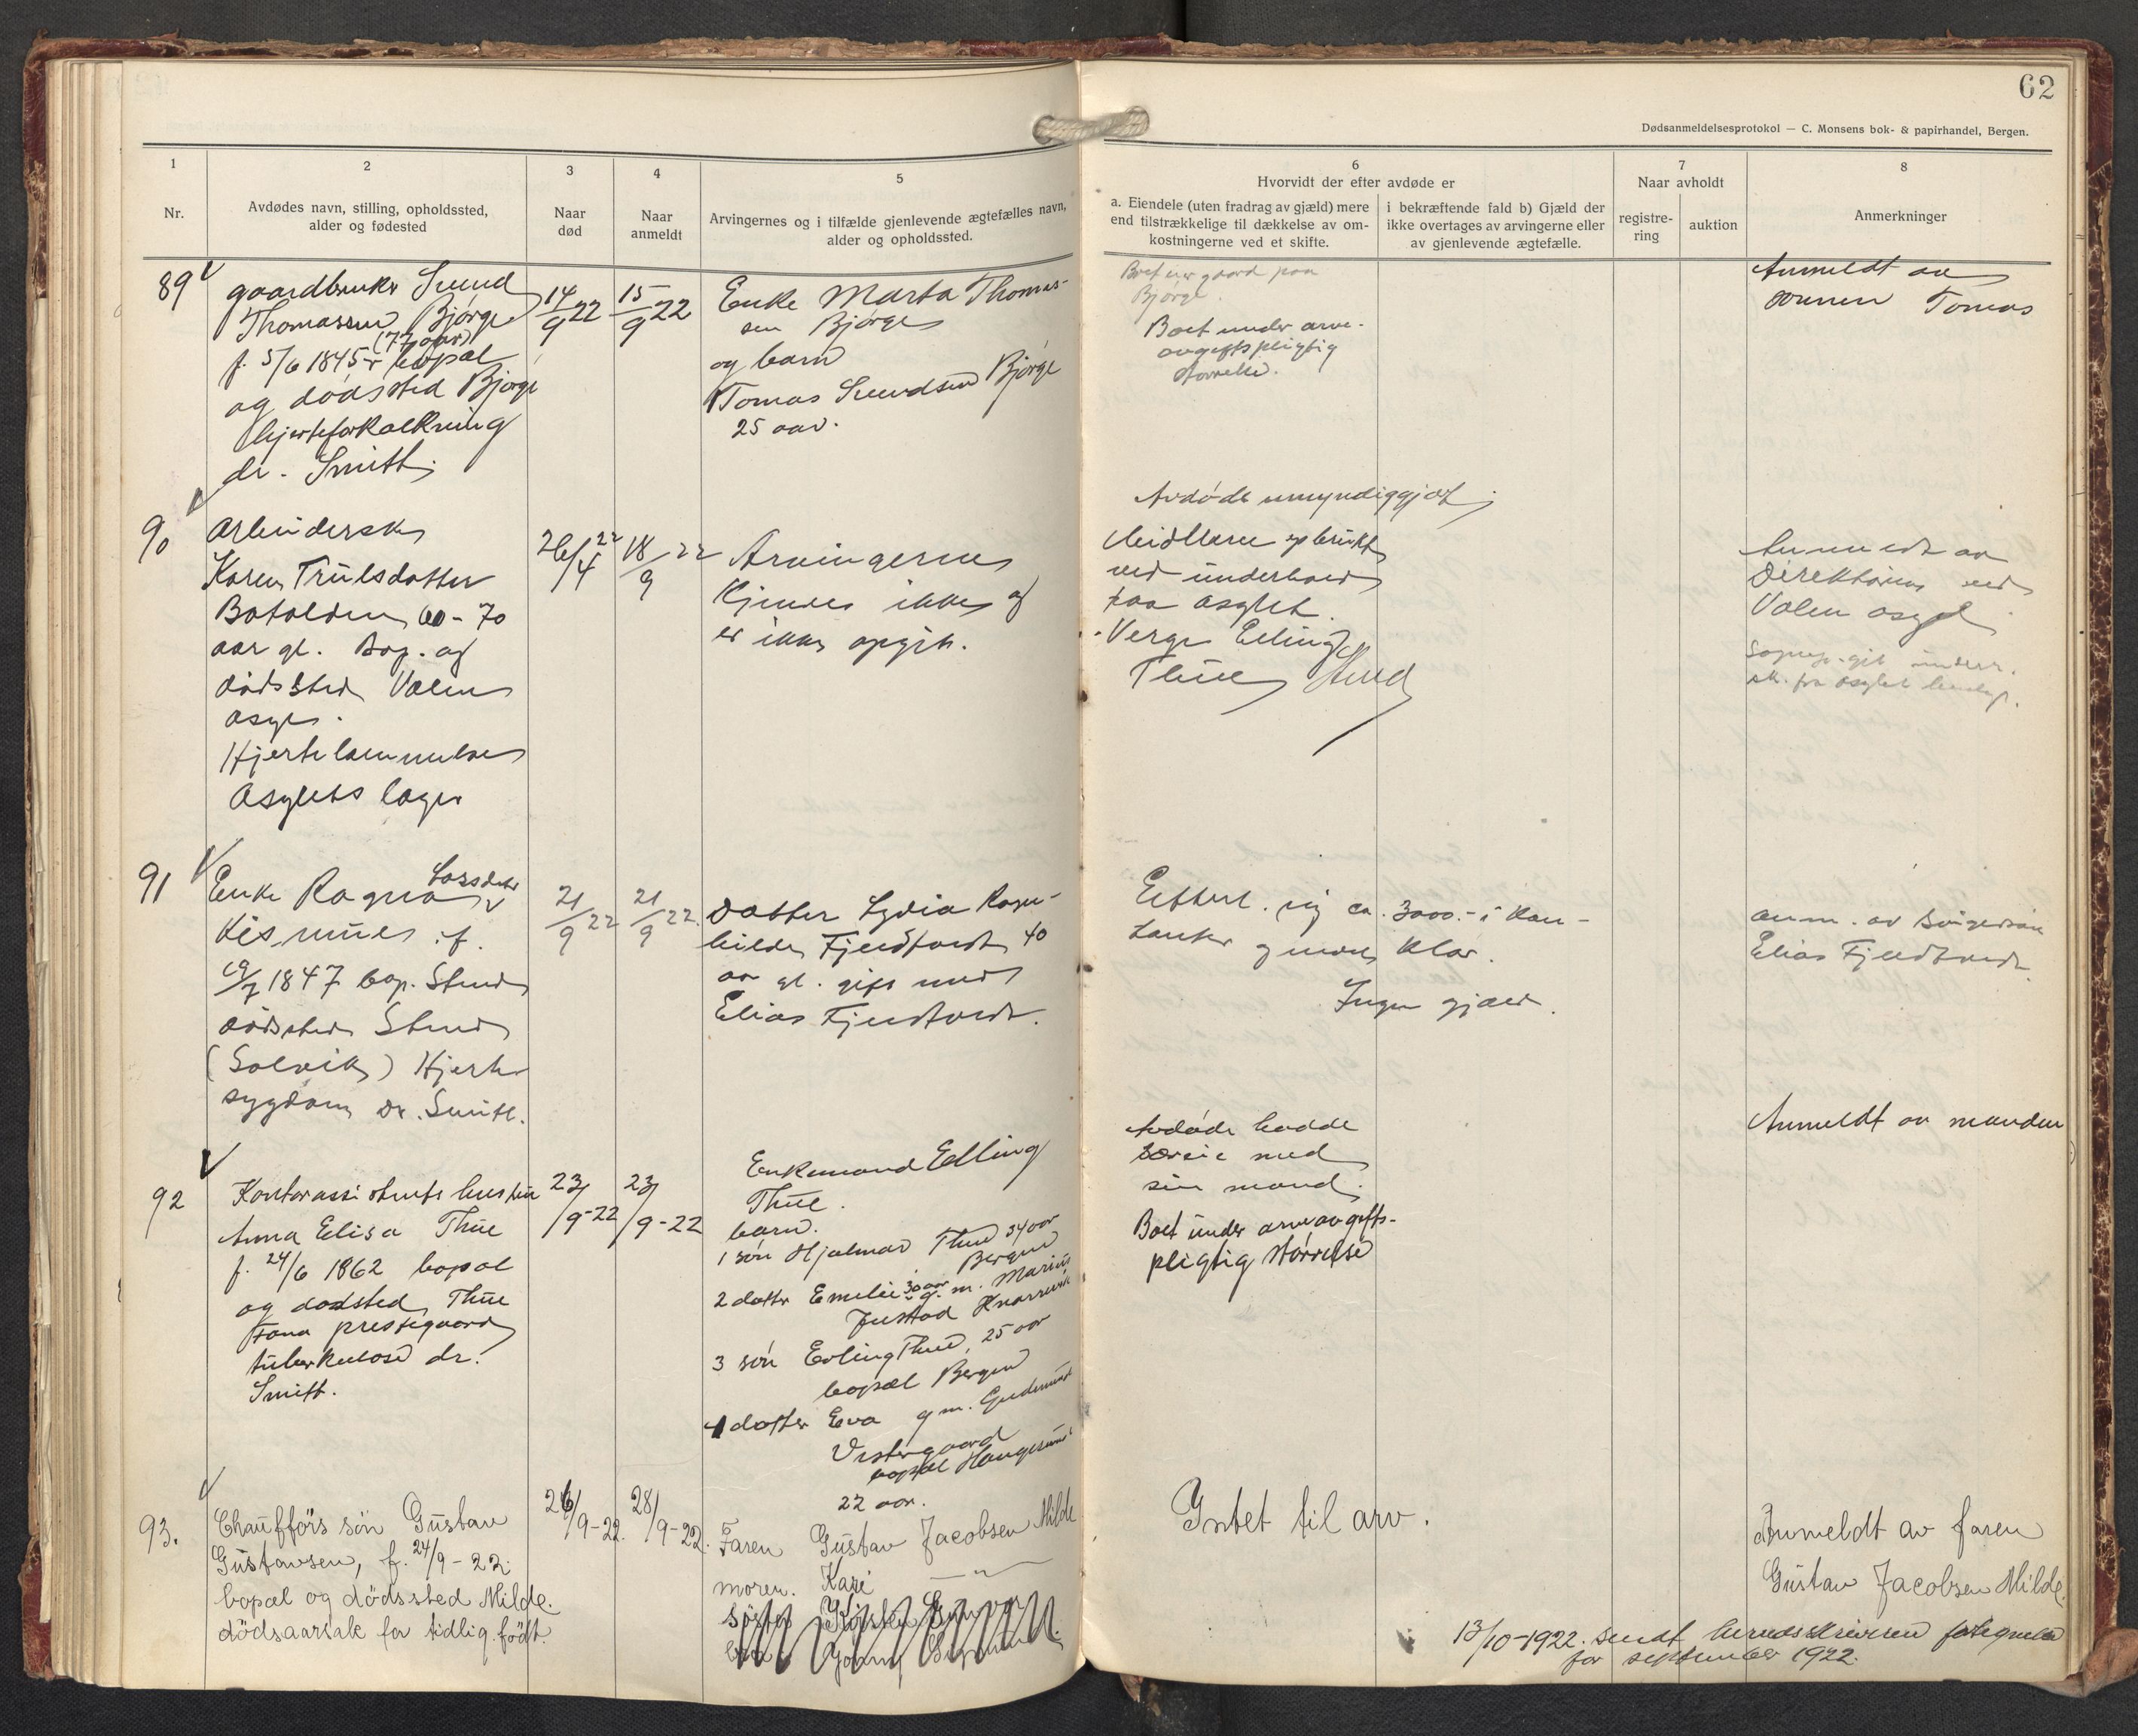 62
Dødsanmeldelsesprotokol — C. Monsens bok- & papirhandel, Bergen.
1
Nr.
2
Avdødes navn, stilling, opholdssted,
alder og fødested
3
Naar
død
4
Naar
anmeldt
5
Arvingernes og i tilfælde gjenlevende ægtefælles navn,
alder og opholdssted.
6
Hvorvidt der efter avdøde er
a. Eiendele (uten fradrag av gjæld) mere
end tilstrækkelige til dækkelse av om-
kostningerne ved et skifte.
i bekræftende fald b) Gjæld der
ikke overtages av arvingerne eller
av gjenlevende ægtefælle.
7
Naar avholdt
registre-
ring
auktion
8
Anmerkninger
89
gaardbruker
Thomassen Bjørge
(77 aar)
f. 5/6 1845 bopæl
og dødssted Bjørge
hjerteforkalkning
dr. Smitt.
14/9 22
15/9 22
Enke Marta Thomas-
sen Bjørge
og barn
Tomas Bjørge
25 aar.
Boet eier gaard paa
Bjørge.
Boet under arve-
avgiftspligtig
størrelse.
Anmeldt av
sønnen Tomas
90
Arbeiderske
Karen Trulsdatter
Botolden 60-70
aar gl. Bop. og
dødssted Valen
asyl.
Hjertelammelse
Asylets læge
26/4 22
18/9 22
Arvingerne
kjendes ikke og
er ikke opgit.
Avdøde umyndiggjort
Midlerne opbrukt
ved underhold
paa asylet.
Verge Erling
Thue Stend
Anmeldt av
Direktøren ved
Valen asyl
91
Enke Ragna Larsdatter
f.
19/7 1847 bop. Stend
dødssted Stend
(Solvik) Hjerte-
sygdom Dr. Smitt.
21/9 22
21/9 22.
Datter Lydia Ragn-
hilde Fjeldtvedt 40
aar gl. gift med
Elias Fjeldtvedt.
Efterl. sig ca. 3000.- i kon-
tanter
Ingen gjæld.
anm. av Svigersøn
Elias Fjeldtvedt.
92
Kontorassistents hustru
Anna Elisa Thue
f. 24/6 1862 bopæl
og dødssted Thue
Fana prestegaard
tuberkulose dr.
Smitt.
23/9-22
23/9-22
Enkemand Edling
Thue.
barn.
1 søn Hjalmar Thue 34 aar
Bergen
2 datter Emilie 30 aar g. m. Marius
Justad Knarrevik
3 søn Erling Thue, 25 aar
bopæl Bergen
4 datter Eva g m. Gudmund
Vestergaard
bopæl Haugesund
22 aar.
Avdøde hadde
særeie med
sin mand.
Boet under arveavgifts-
pligtig størrelse
Anmeldt av manden
93.
Chaufförs sön Gustav
Gustavsen, f. 24/9-22.
bopæl og dödssted Milde.
dödsaarsak for tidlig født.
26/9-22.
28/9-22.
Faren Gustav Jacobsen Milde
moren. Kari —"—
Intet til arv.
Anmeldt av faren
Gustav Jacobsen Milde.
13/10-1922. sendt herredsskriveren fortegnelse
for september 1922.